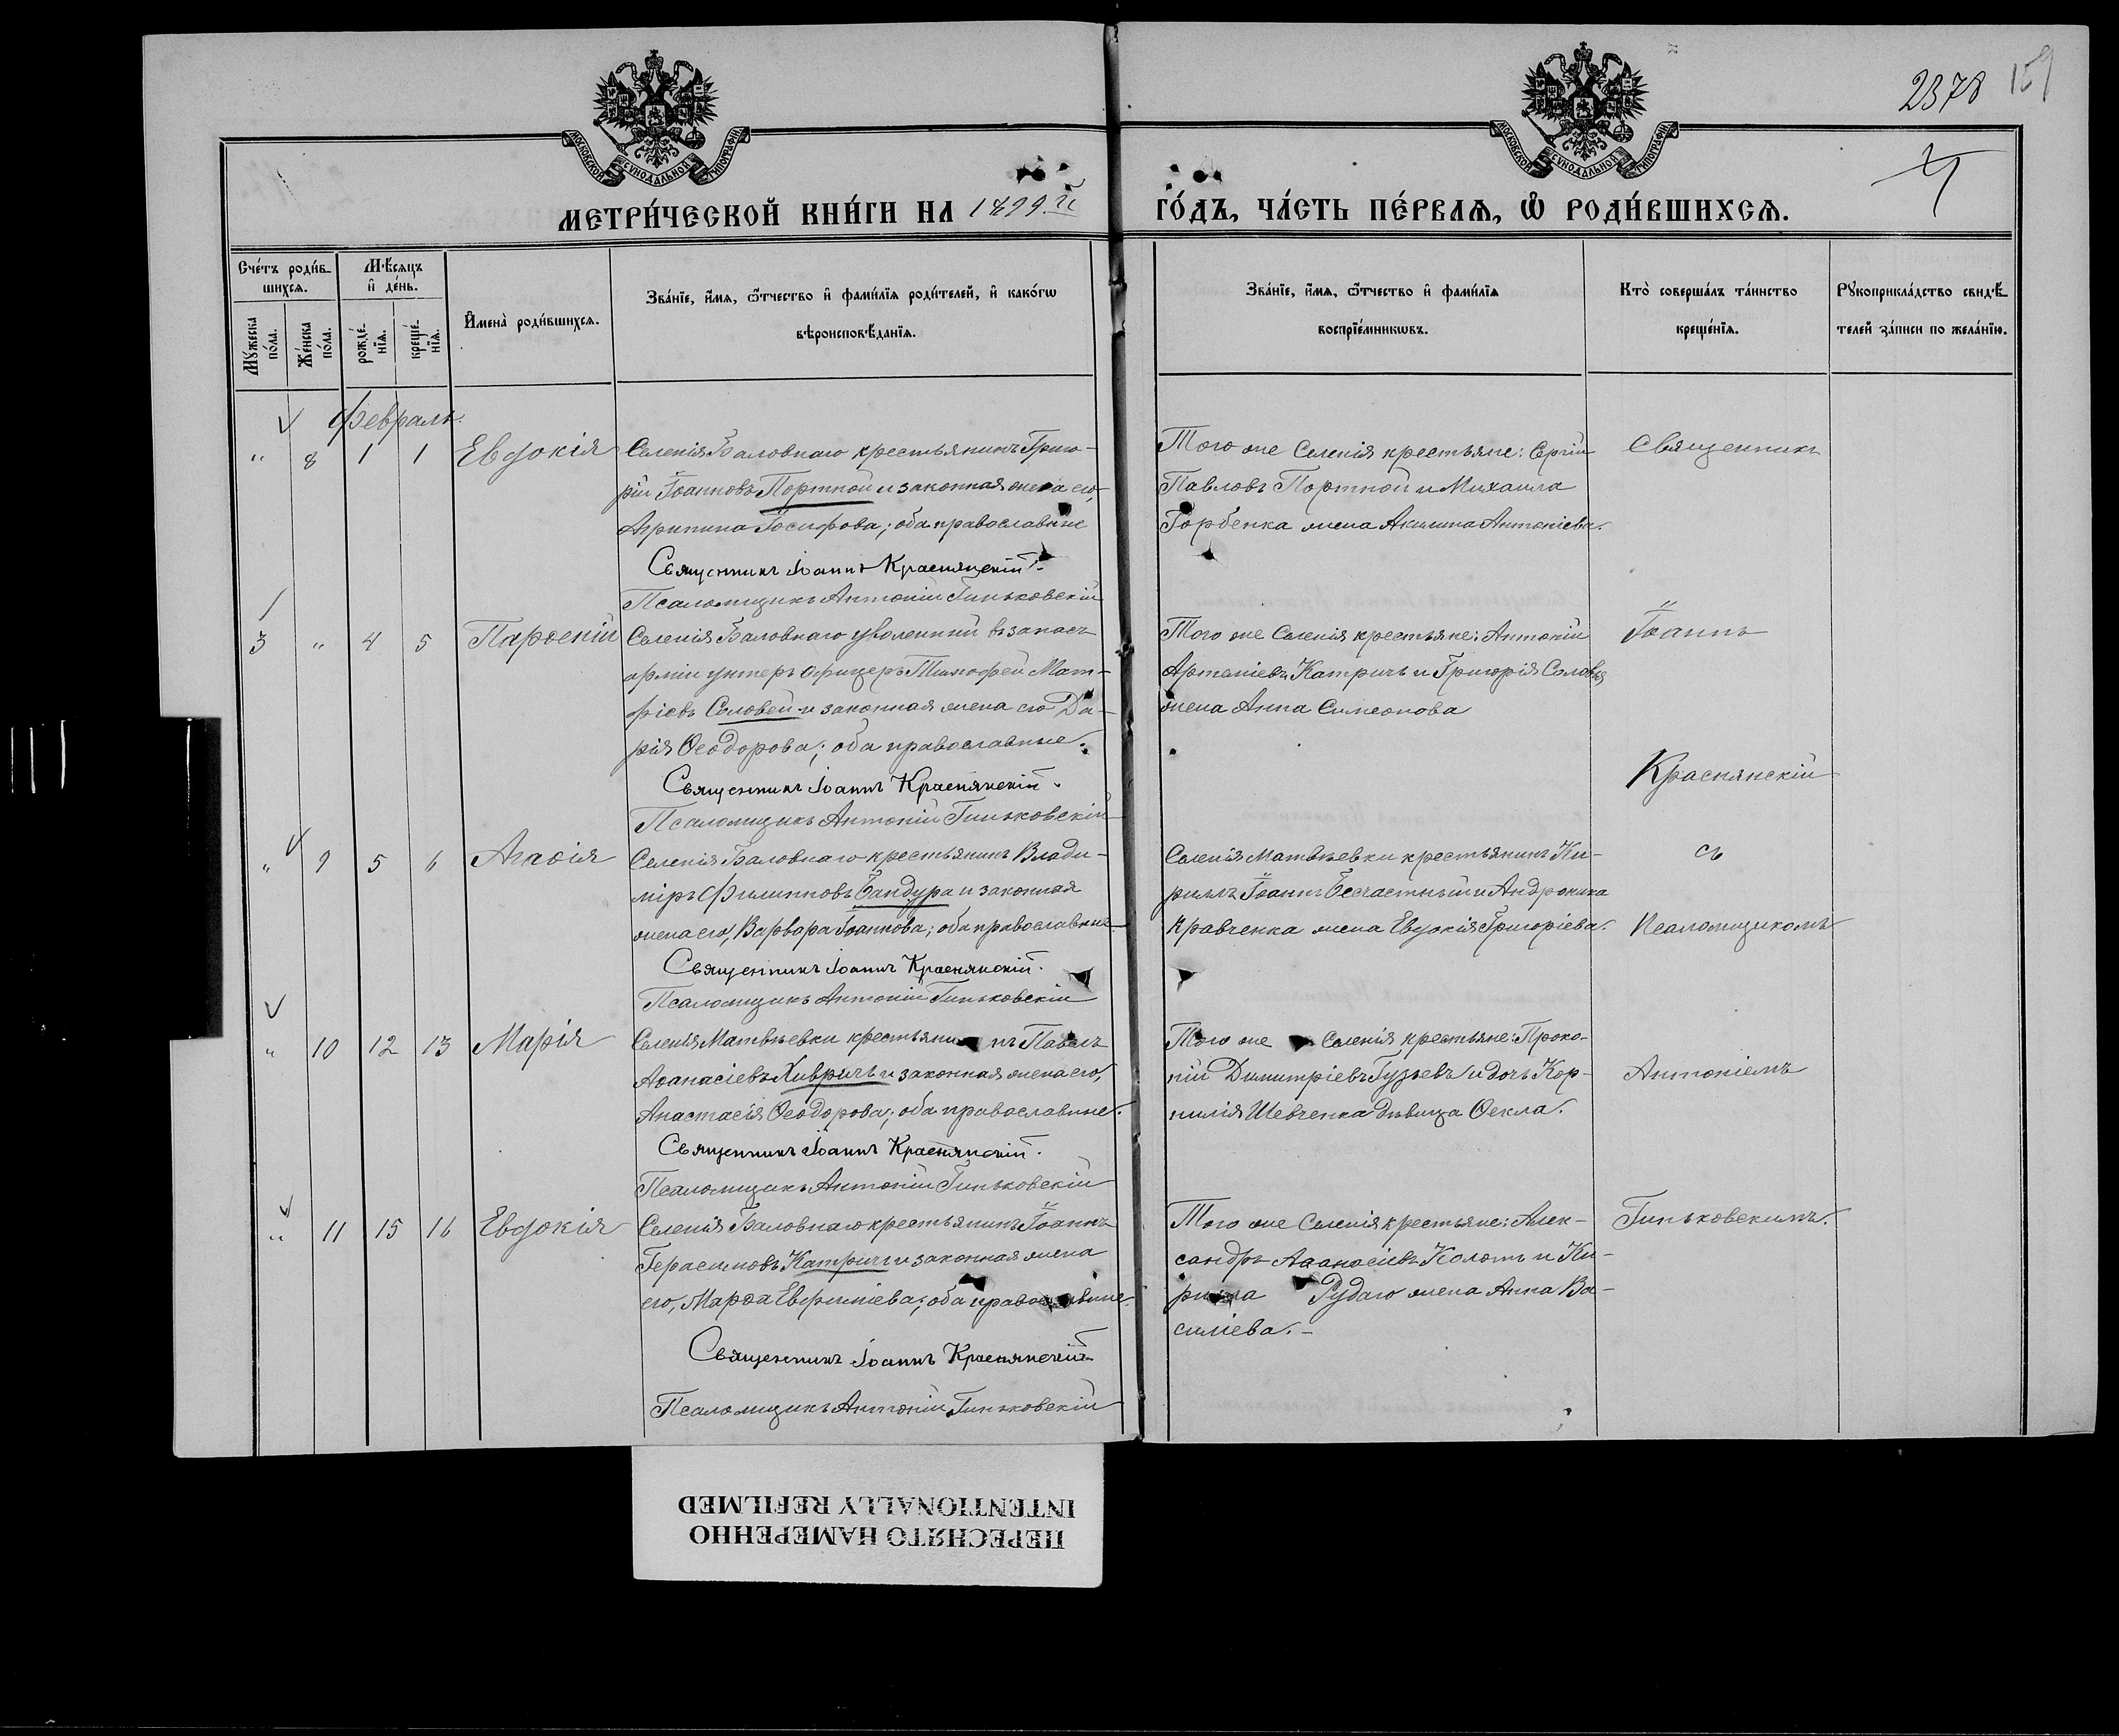 2378 159
МОСКОВСКОЙ СѴНОДАЛЬНОЙ ТИПОГРАФІИ
МОСКОВСКОЙ СѴНОДАЛЬНОЙ ТИПОГРАФІИ
МЕТРИ́ЧЕСКОЙ КНИ́ГИ НА 1899й ГО́ДЪ, ЧА́СТЬ ПЕ́РВАѦ, Ѡ҆ РОДИ́ВШИХСѦ.
Сче́тъ роди́в-
шихсѧ.
Мѣ́сяцъ
и҆ де́нь.
Мꙋ́жеска по́ла.
Же́нска по́ла.
рожде́-
нїѧ.
креще́-
нїѧ.
И҆мена̀ роди́вшихсѧ.
Зва́нїе, и҆́мѧ, ѻ҆́тчество и҆ фами́лїѧ роди́телей, и҆ како́гѡ
вѣроисповѣ́данїѧ.
Зва́нїе, и҆́мѧ, ѻ҆́тчество и҆ фами́лїѧ
воспрїе́мникѡвъ.
Кто̀ соверша́лъ та́инство
креще́нїѧ.
Рꙋкоприкла́дство свидѣ́-
телей за́писи по жела́нїю.
Февраль.
" 8 1 1 Евдокія
Селенія Баловнаго крестьянинъ Григо-
рій Іоанновъ Портной и законная жена его,
Агрипина Іосифова; оба православные
Священникъ Іоаннъ Краснянскій.
Псаломщикъ Антоній Гиньковскій
Того же Селенія крестьяне: Сергій
Павловъ Портной и Михаила
Горбенка жена Акилина Антоніева.
Священникъ
3 " 4 5 Парѳеній
Селенія Баловнаго уволенный въ запасъ
арміи унтеръ офицеръ Тимофей Мат-
фіевъ Соловей и законная жена его Да-
рія Ѳеодорова; оба православные.
Священникъ Іоаннъ Краснянскій.
Псаломщикъ Антоній Гиньковскій
Того же Селенія крестьяне: Антоній
Артеміевъ Катричъ и Григорія Соловья
жена Анна Симеонова
Іоаннъ
Краснянскій
" 9 5 6 Агаѳія
Селенія Баловнаго крестьянинъ Влади-
міръ Филипповъ Бандура и законная
жена его, Варвара Іоаннова; оба православные
Священникъ Іоаннъ Краснянскій.
Псаломщикъ Антоній Гиньковскій
Селенія Матвѣевки крестьянинъ Ки-
риллъ Іоаннъ Бесчастный и Андроника
Кравченка жена Евдокія Григоріева.
съ
Псаломщикомъ
" 10 12 13 Марія
Селенія Матвѣевки крестьянинъ Павелъ
Аѳанасіевъ Хивричъ и законная жена его,
Анастасія Ѳеодорова; оба православные.
Священникъ Іоаннъ Краснянскій.
Псаломщикъ Антоній Гиньковскій
Того же Селенія крестьяне: Проко-
пій Димитріевъ Гузьевъ и дочь Кор-
нилія Шевченка дѣвица Ѳекла.
Антоніемъ
" 11 15 16 Евдокія
Селенія Баловнаго крестьянинъ Іоаннъ
Герасимовъ Катричъ и законная жена
его, Марѳа Евфиміева; оба православные.
Священникъ Іоаннъ Краснянскій
Псаломщикъ Антоній Гиньковскій
Того же Селенія крестьяне: Алек-
сандръ Аѳанасіевъ Коломъ и Ки-
рилла Рудаго жена Анна Ва-
силіева.
Гиньковскимъ.
ПЕРЕСНЯТО НАМЕРЕННО
INTENTIONALLY REFILMED